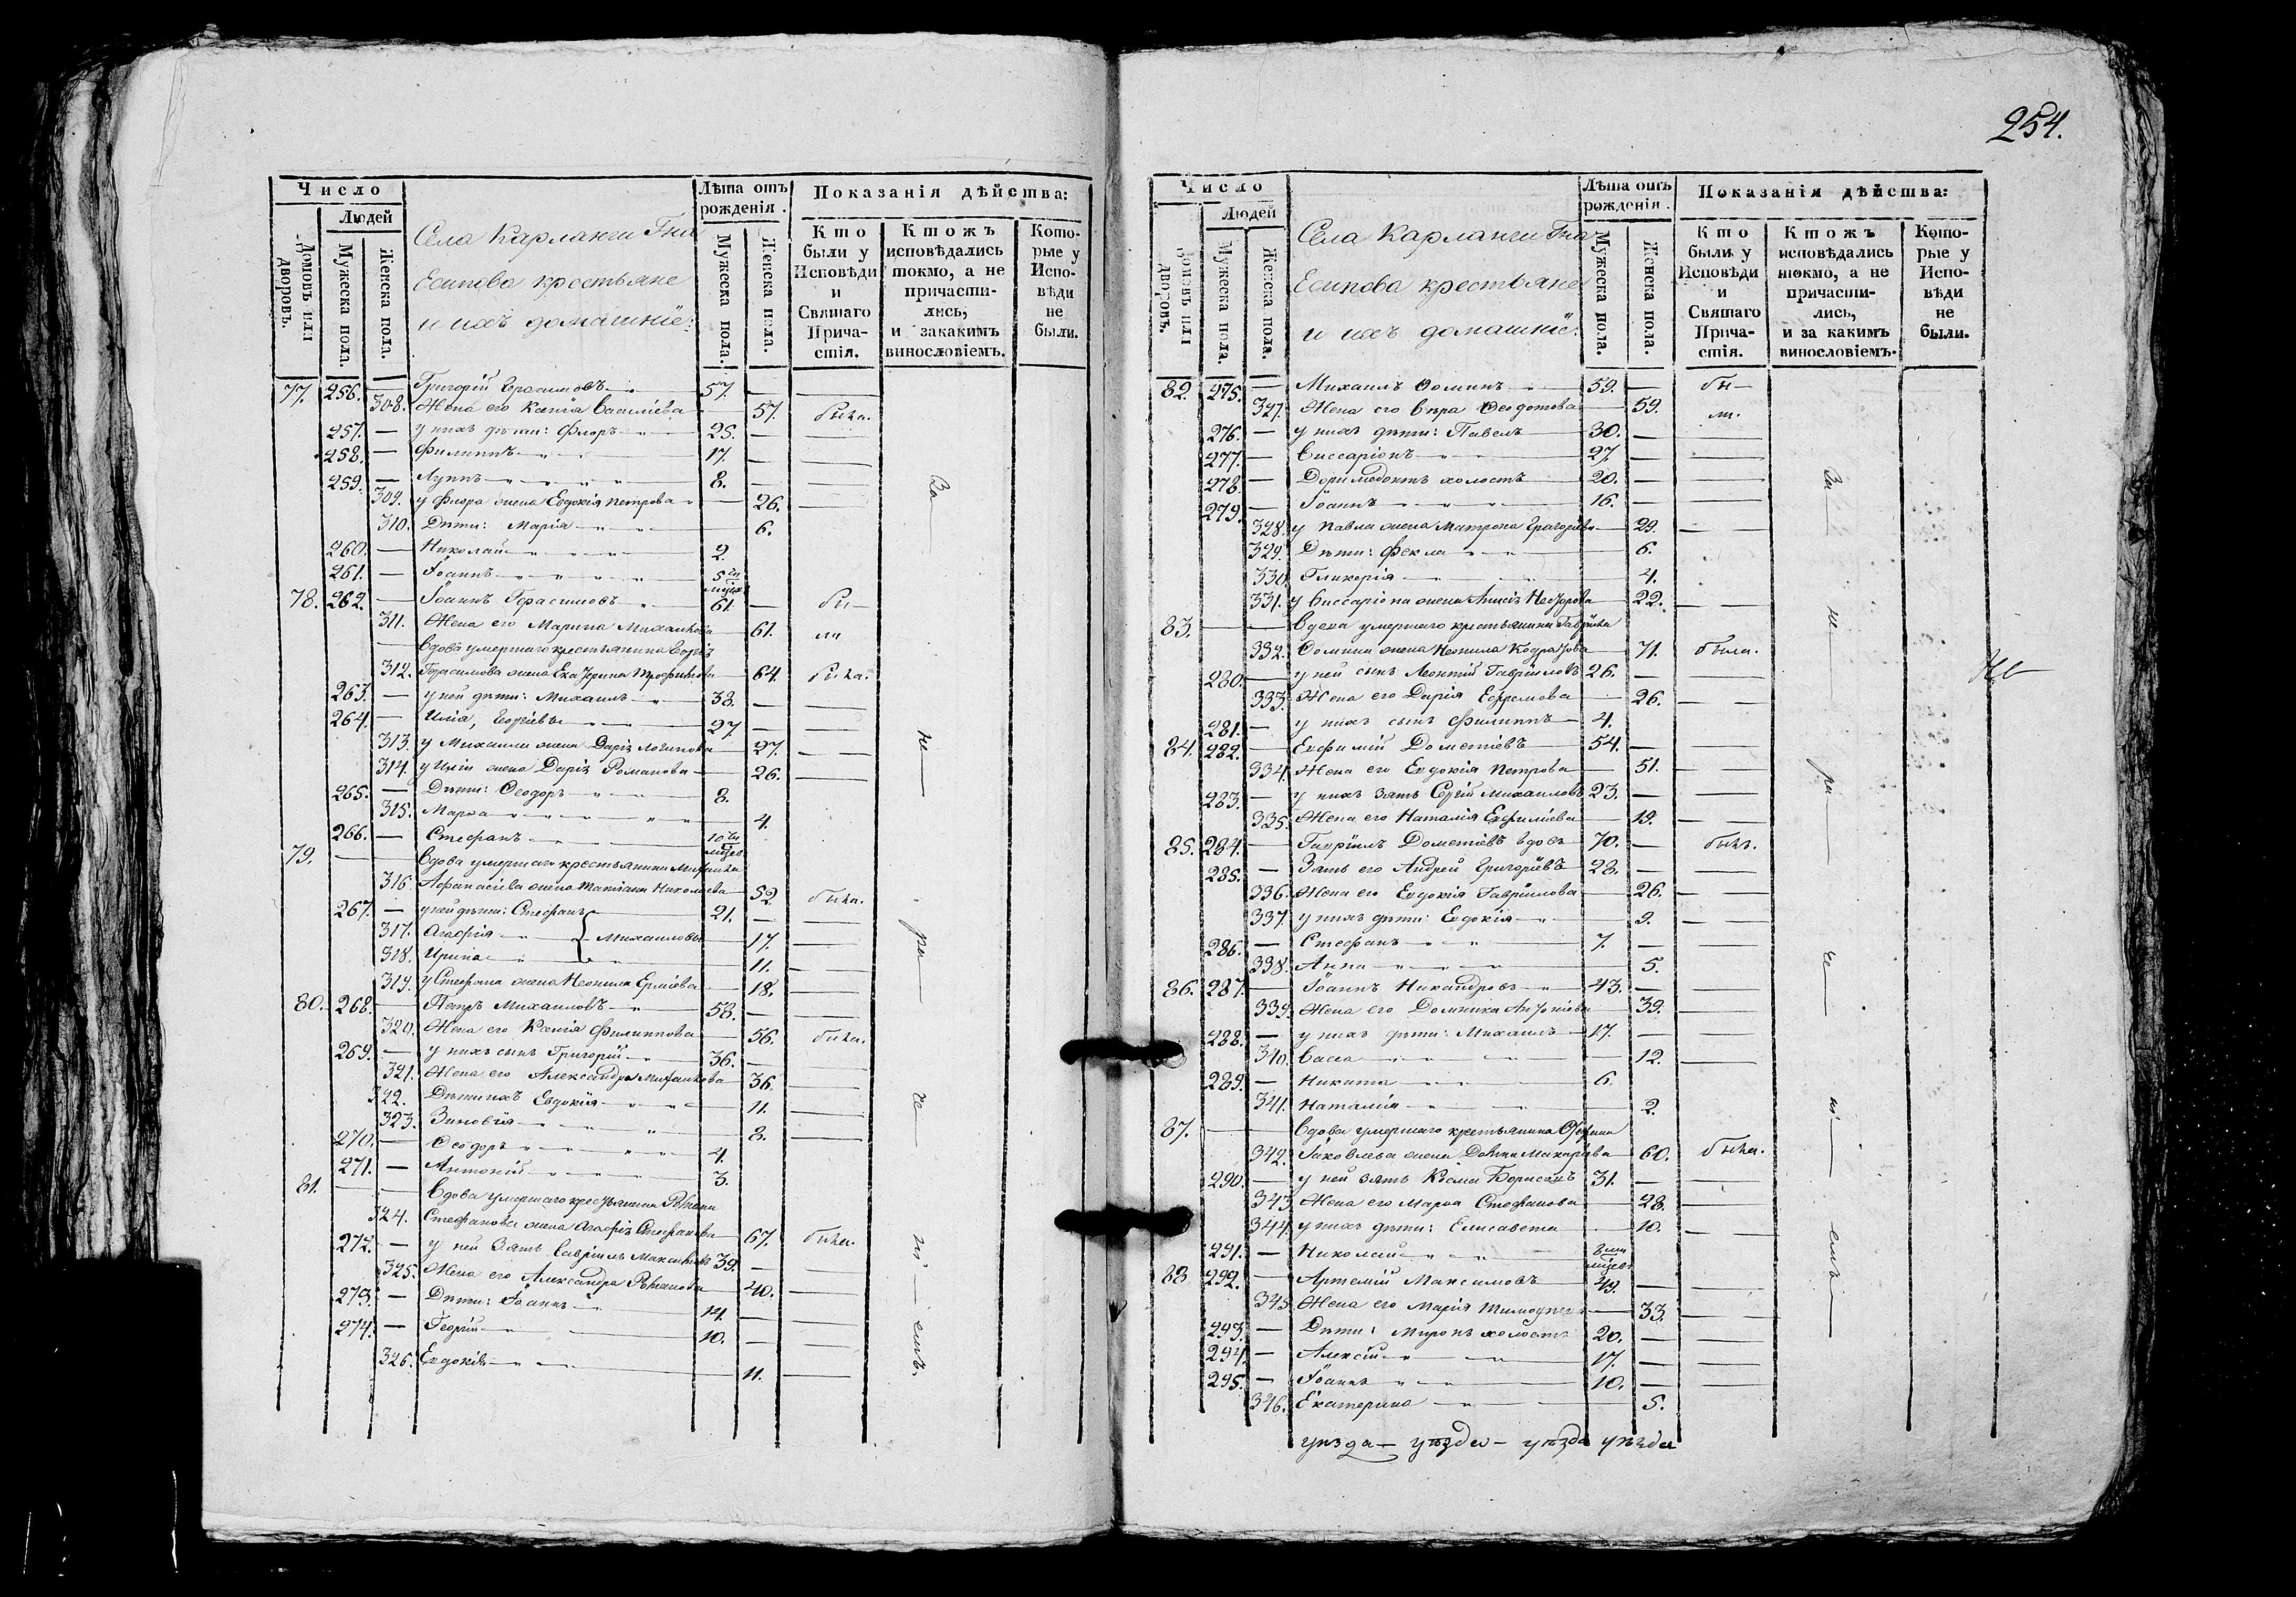 Число
Людей
Домовъ или дворовъ.
Мужеска пола.
Женска пола.
Села Карланги Гна
Есипова крестьяне
и ихъ домашніе:
Лѣта отъ рожденія.
Мужеска пола.
Женска пола.
Показанія дѣйства:
Кто были у Исповѣди и Святаго Причастія.
Ктожъ исповѣдались токмо, а не причастились, и закакимъ винословіемъ.
Которые у Исповѣди не были.
77. 256. — Григорій Герасимовъ 57. —
308. Жена его Ксенія Васильева 57. была.
257. — у нихъ дѣти: Флоръ 25. —
258. — Филиппъ 17. —
259. — Луппъ 8. —
309. у Флора жена Евдокія Петрова — 26.
310. Дѣти: Марія — 6.
260. — Николай 2.
261. — Іоаннъ 5
78. 262. — Іоаннъ Герасимовъ 61. — бы
311. Жена его Марина Михайлова — 61. ли
Вдова умершаго крестьянина
312. Герасимова жена Екатерина — 64. была.
263. — у ней дѣти: Михаилъ 38. —
264. — Илія, Георгіевы 27. —
313. у Михаила жена Дарія Логинова 27.
314. у Иліи жена Дарія Романова — 26.
265. — Дѣти: Ѳеодоръ 8.
315. Марѳа 4.
266. — Стефанъ 10
79. — Вдова умершаго крестьянина Михаила
316. Афанасіева жена Татіана Николаева — 52. была.
267. — у ней дѣти: Стефанъ 21. —
317. Агафія Михаиловы 17.
318. Ирина 11.
319. у Стефана жена Неонила Ерміева — 18.
80. 268. — Петръ Михаиловъ 58. —
320. Жена его Ксенія Филиппова — 56. была.
269. — у нихъ сынъ Григорій 36. —
321. Жена его Александра Михаилова — 36.
322. Дѣти ихъ Евдокія 11.
323. Зиновія 8.
270. — Ѳеодоръ 4.
271. — Антоній 3.
81. — Вдова умершаго крестьянина Романа
324. Стефанова жена Агафія Стефанова — 67. была.
272. — у ней зять Гавріилъ Максимовъ 39. —
325. Жена его Александра Романова — 40.
273. — Дѣти: Іоаннъ 14. —
274. — Георгій 10. —
326. Евдокія 11.
За не ра че ні емъ.
254.
Число
Людей
Домовъ или дворовъ.
Мужеска пола.
Женска пола.
Села Карланги Гна
Есипова крестьяне
и ихъ домашніе:
Лѣта отъ рожденія.
Мужеска пола.
Женска пола.
Показанія дѣйства:
Кто были у Исповѣди и Святаго Причастія.
Ктожъ исповѣдались токмо, а не причастились, и за какимъ винословіемъ.
Которые у Исповѣди не были.
82. 275. — Михаилъ Ѳоминъ 59. — бы
327. Жена его Вѣра Ѳеодотова — 59. ли.
276. — у нихъ дѣти: Павелъ 30. —
277. — Виссаріонъ 27. —
278. — Доримедонтъ холостъ 20. —
279. — Іоаннъ 16. —
328. у Павла жена Матрона Григорьева — 29.
329. Дѣти: Фекла — 6.
330. Гликерія 4.
331. у Виссаріона жена Анисія — 22.
83. — Вдова умершаго крестьянина Гавріила
332. Ѳомина жена Неонила — 71. была.
280. — у ней сынъ Леонтій Гавріиловъ 26. —
333. Жена его Дарія Ефремова 26.
281. — у нихъ сынъ Филиппъ 4.
84. 282. — Евфимій Дометіевъ 54. —
334. Жена его Евдокія Петрова — 51.
283. — у нихъ зять Сергій Михаиловъ 23. —
335. Жена его Наталія Евфиміева — 19.
85. 284. — Гавріилъ Дометіевъ вдовъ 70. — былъ.
285. — Зять его Андрей Григорьевъ 28. —
336. Жена его Евдокія Гавріилова — 26.
337. у нихъ дѣти: Евдокія — 9.
286. — Стефанъ 7. —
338. Анна 5.
86. 287. — Іоаннъ Никандровъ 43. —
339. Жена его Домника Антоніева 39.
288. — у нихъ дѣти: Михаилъ 17. —
340. Васса 12.
289. — Никита 6.
341. Наталія 2.
87. — Вдова умершаго крестьянина
342. Іаковлева жена Макаріева — 60. была.
290. — у ней зять Косма Борисовъ 31. —
343. Жена его Марѳа Стефанова — 28.
344. у нихъ дѣти: Елисавета — 10.
291. — Николай
88 292. — Артемій Максимовъ 49. —
345. Жена его Марія — 33.
293. — Дѣти: Миронъ холостъ 20. —
294. — Алексій 17. —
295. — Іоаннъ 10. —
346. Екатерина 5.
За не ра че ні емъ
уѣзда — уѣзда — уѣзда уѣзда